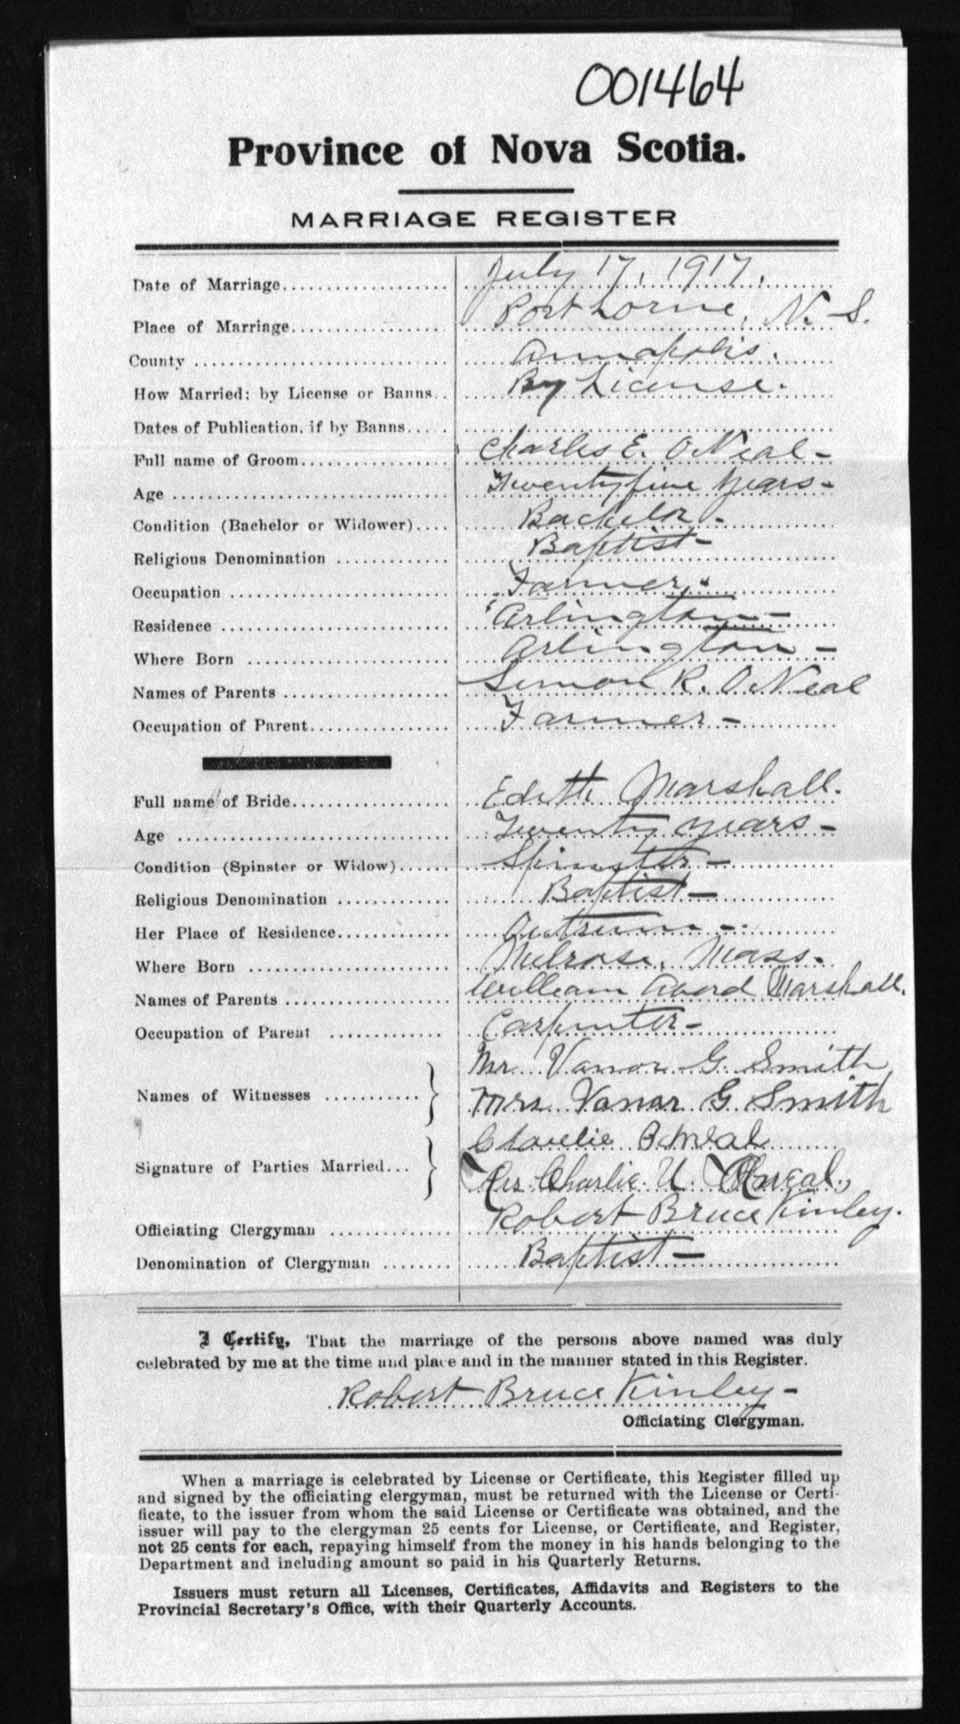 001464
Province of Nova Scotia.
MARRIAGE REGISTER
Date of Marriage.................... July 17, 1917.
Place of Marriage................... Port Lorne, N. S.
County ............................. Annapolis.
How Married; by License or Banns.. By License.
Dates of Publication, if by Banns.....
Full name of Groom.................. Charles E. O'Neal -
Age ................................ Twentyfive years -
Condition (Bachelor or Widower).... Bachelor -
Religious Denomination ............. Baptist -
Occupation ......................... Farmer.
Residence .......................... Arlington -
Where Born ......................... Arlington -
Names of Parents ................... Simon R. O'Neal
Occupation of Parent................ Farmer -
Full name of Bride.................. Edith Marshall.
Age ................................ Twenty years -
Condition (Spinster or Widow)...... Spinster -
Religious Denomination ............. Baptist -
Her Place of Residence.............
Where Born ......................... Melrose, Mass.
Names of Parents ................... William Avard Marshall.
Occupation of Parent ............. Carpenter -
Mr. Vanor G. Smith
Names of Witnesses ........... Mrs. Vanor G. Smith
Charlie O'Neal
Signature of Parties Married... Mrs Charlie U. O'Neal.
Officiating Clergyman .............. Robert Bruce Kinley.
Denomination of Clergyman ........ Baptist -
I Certify, That the marriage of the persons above named was duly
celebrated by me at the time and place and in the manner stated in this Register.
Robert Bruce Kinley -
Officiating Clergyman.
When a marriage is celebrated by License or Certificate, this Register filled up
and signed by the officiating clergyman, must be returned with the License or Certi-
ficate, to the issuer from whom the said License or Certificate was obtained, and the
issuer will pay to the clergyman 25 cents for License, or Certificate, and Register,
not 25 cents for each, repaying himself from the money in his hands belonging to the
Department and including amount so paid in his Quarterly Returns.
Issuers must return all Licenses, Certificates, Affidavits and Registers to the
Provincial Secretary's Office, with their Quarterly Accounts.